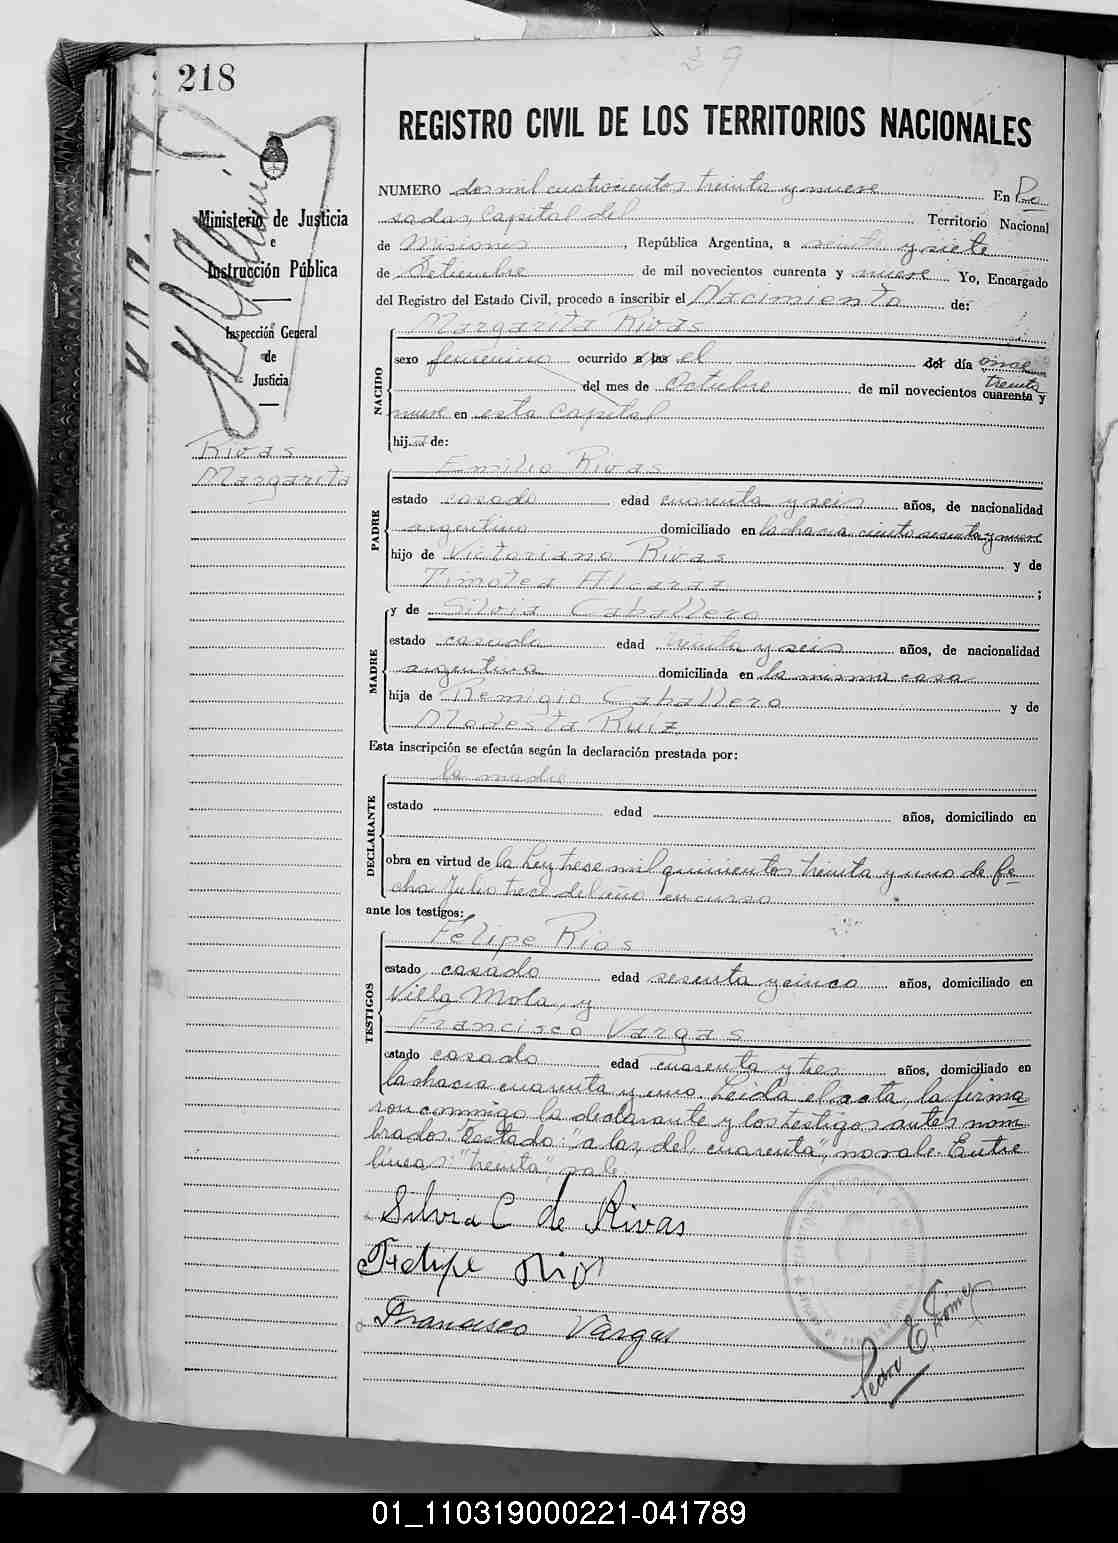 218
REGISTRO CIVIL DE LOS TERRITORIOS NACIONALES
NUMERO dos mil cuatrocientos treinta y nueve En Po
sadas, Capital del Territorio Nacional
de Misiones, República Argentina, a veinte y siete
de Setiembre de mil novecientos cuarenta y nueve Yo, Encargado
del Registro del Estado Civil, procedo a inscribir el Nacimiento de:
Margarita Rivas
sexo femenino ocurrido a las el del día once
treinta
del mes de Octubre de mil novecientos cuarenta y
nueve en esta Capital
hij a de:
NACIDO
Emilio Rivas
estado casado edad cuarenta y seis años, de nacionalidad
argentino domiciliado en la chacra ciento sesenta y nueve
hijo de Victoriano Rivas y de
Timotea Alcaraz ;
PADRE
y de Silvia Caballero
estado casada edad treinta y seis años, de nacionalidad
argentina domiciliada en la misma casa
hija de Remigio Caballero y de
Modesta Ruiz
MADRE
Esta inscripción se efectúa según la declaración prestada por:
la madre
estado edad años, domiciliado en
obra en virtud de la Ley trece mil quinientos treinta y uno de fe
cha Julio trece del año en curso
DECLARANTE
ante los testigos:
Felipe Rios
estado casado edad sesenta y cinco años, domiciliado en
Villa Mola, y
Francisco Vargas
estado casado edad cuarenta y tres años, domiciliado en
la chacra cuarenta y uno. Leida el acta, la firma
TESTIGOS
ron conmigo la declarante y los testigos antes nom
brados. Testado: "a las, del, cuarenta", no vale. Entre
lineas: "treinta", vale.
Silvia C de Rivas
Felipe Rios
Francisco Vargas
Pedro E.
Ministerio de Justicia
e
Instrucción Pública
Inspección General
de
Justicia
Rivas
Margarita
01_110319000221-041789